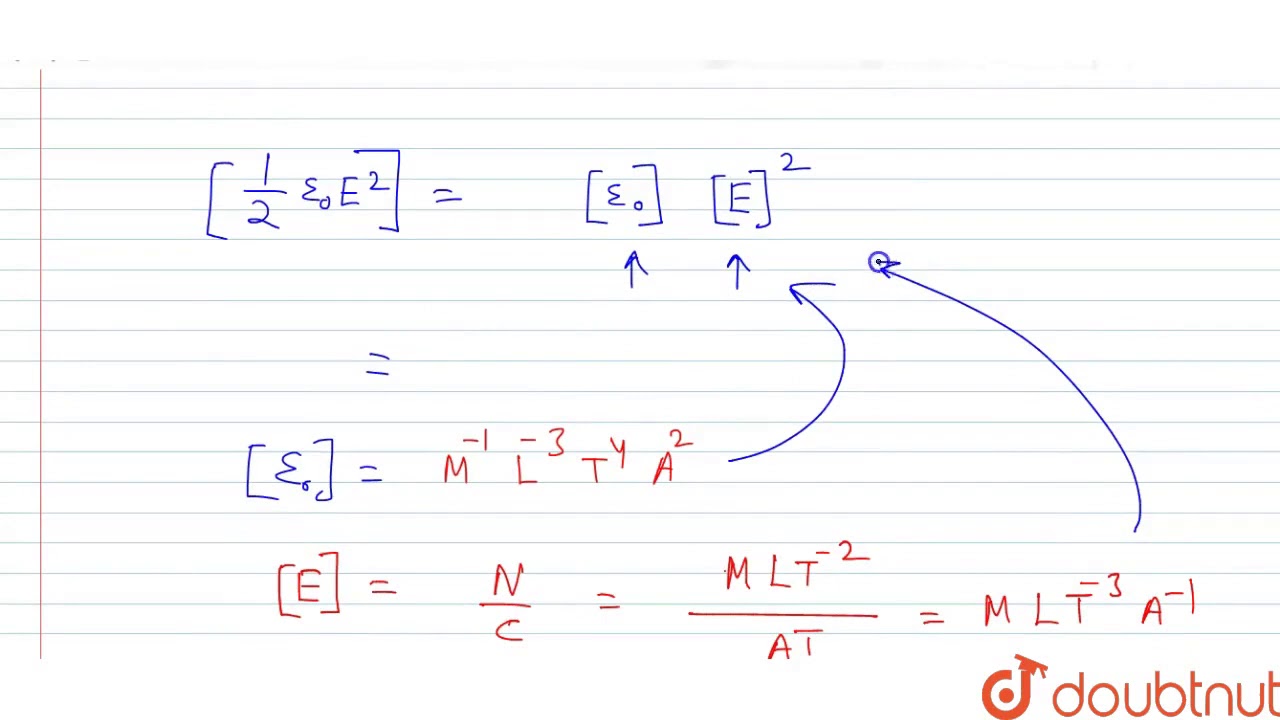 [1/2 ε₀E²] = [ε₀] [E]²
=
[ε₀] = M⁻¹ L⁻³ T⁴ A²
[E] = N/C = M L T⁻²/A T = M L T⁻³ A⁻¹
doubtnut